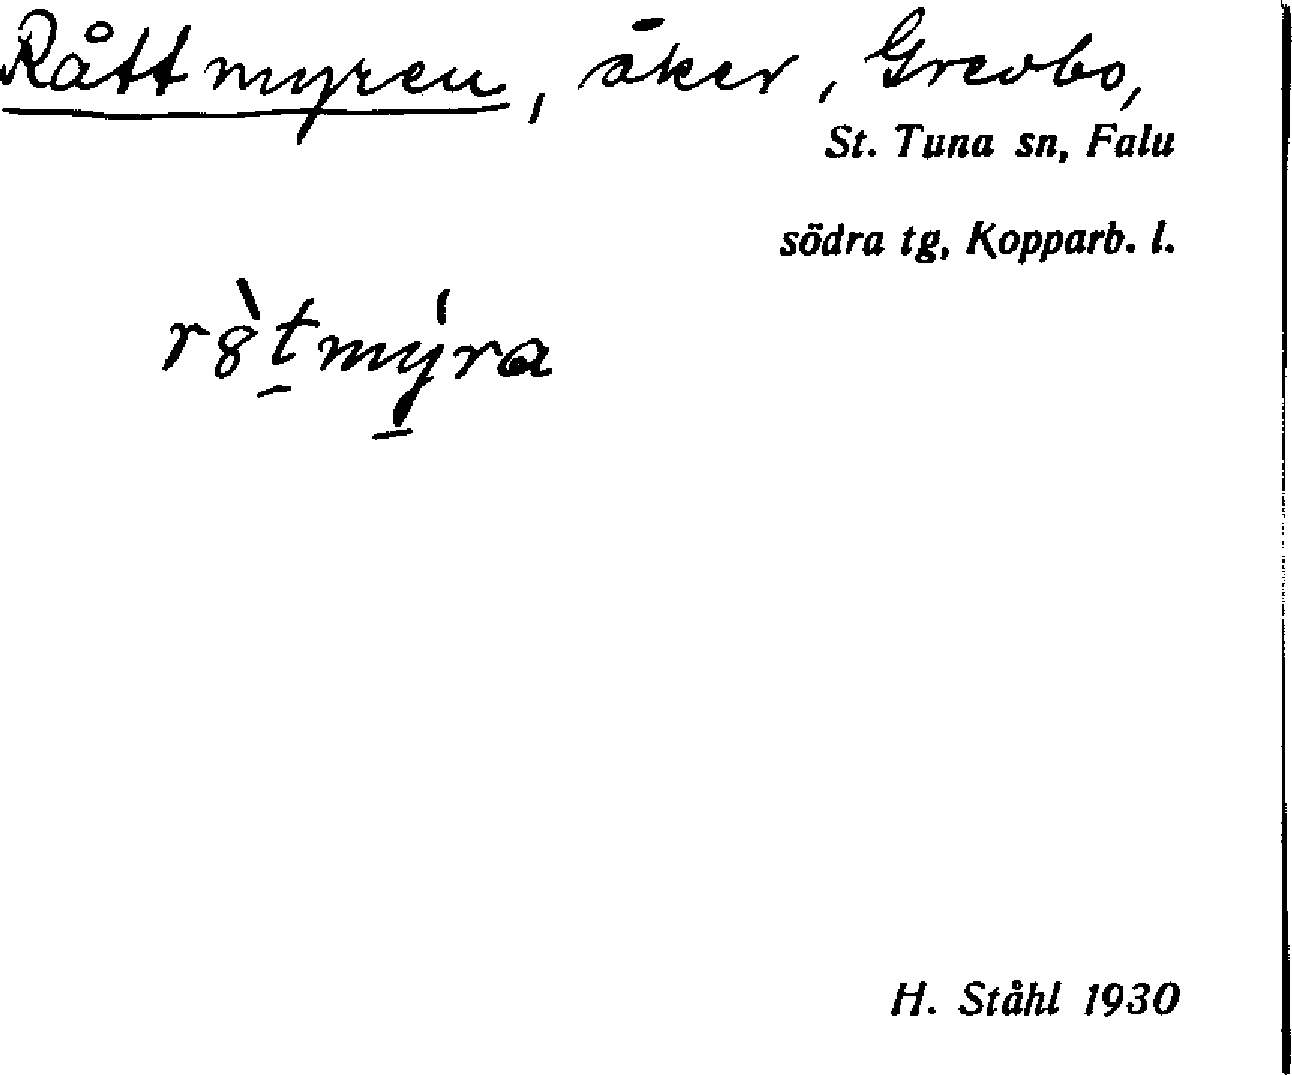 Råttmyren, åker, Grevbo,
St. Tuna sn, Falu
södra tg, Kopparb. l.
r8̀t̠mý̠ra
H. Ståhl 1930